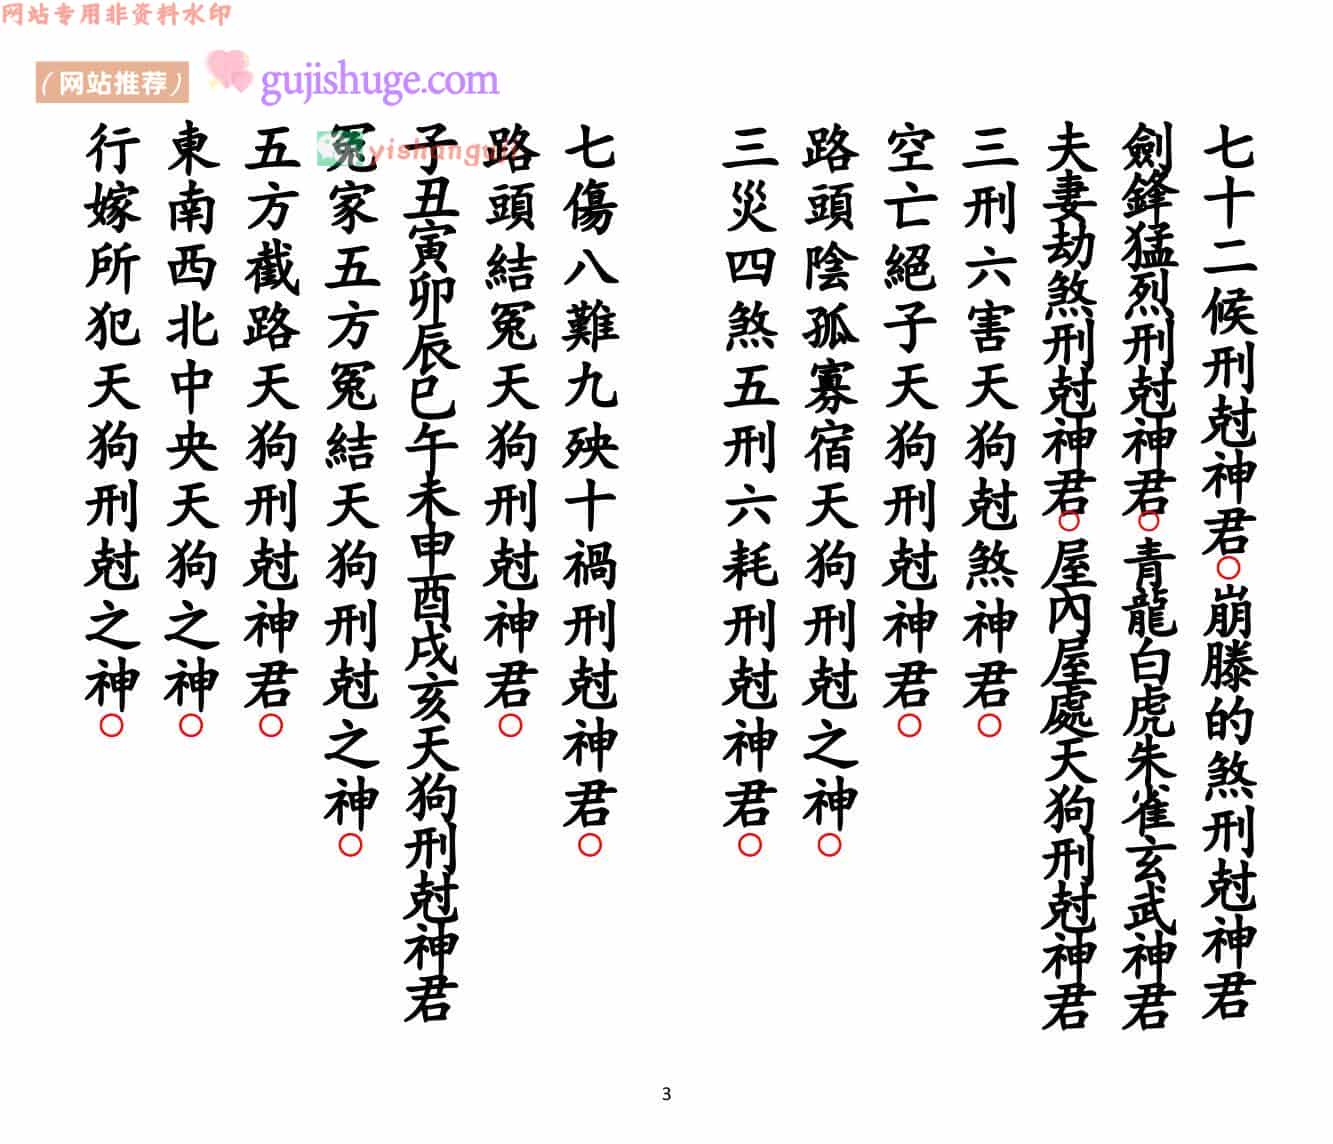 网站专用非资料水印
（网站推荐）
gujishuge.com
yishanguji
七十二候刑尅神君○崩滕的煞刑尅神君
劍鋒猛烈刑尅神君○青龍白虎朱雀玄武神君
夫妻劫煞刑尅神君○屋內屋處天狗刑尅神君
三刑六害天狗尅煞神君○
空亡絕子天狗刑尅神君○
路頭陰孤寡宿天狗刑尅之神○
三災四煞五刑六耗刑尅神君○
七傷八難九殃十禍刑尅神君○
路頭結冤天狗刑尅神君○
子丑寅卯辰巳午未申酉戌亥天狗刑尅神君
冤家五方冤結天狗刑尅之神○
五方截路天狗刑尅神君○
東南西北中央天狗之神○
行嫁所犯天狗刑尅之神○
3